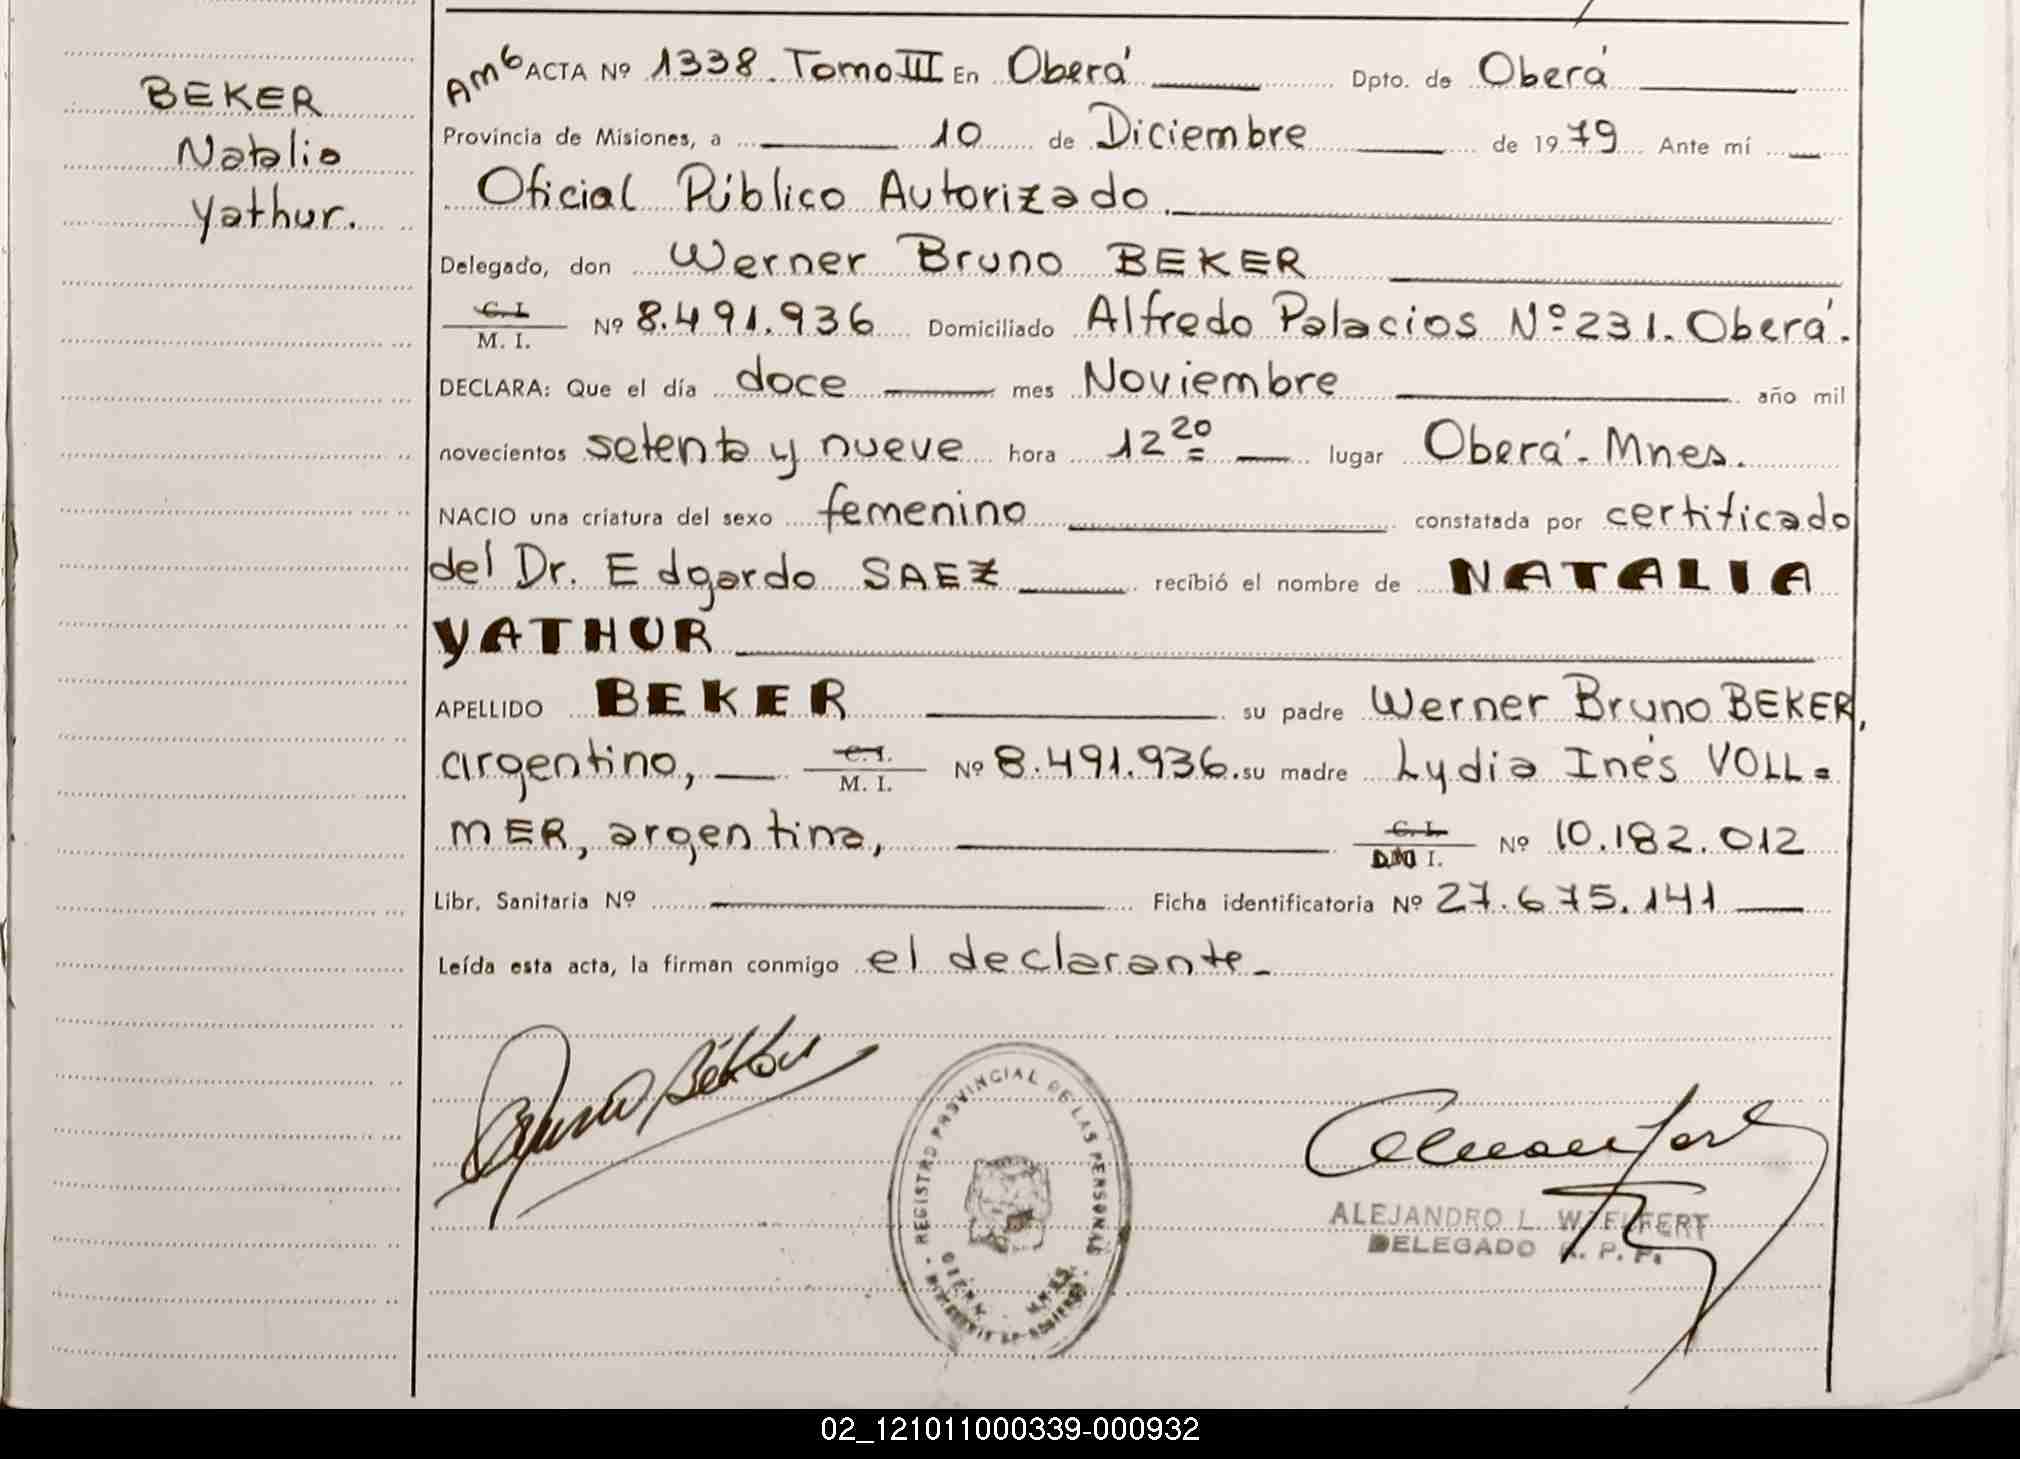 BEKER
Natalia
Yathur.
Am6 ACTA Nº 1338. Tomo III En Oberá Dpto. de Oberá
Provincia de Misiones, a 10 de Diciembre de 1979 Ante mí
Oficial Público Autorizado.
Delegado, don Werner Bruno BEKER
C. I. M. I. Nº 8.491.936 Domiciliado Alfredo Palacios Nº 231. Oberá.
DECLARA: Que el día doce mes Noviembre año mil
novecientos setenta y nueve hora 12 20 lugar Oberá - Mnes.
NACIO una criatura del sexo femenino constatada por certificado
del Dr. Edgardo SAEZ recibió el nombre de NATALIA
YATHUR
APELLIDO BEKER su padre Werner Bruno BEKER,
argentino, C. I. M. I. Nº 8.491.936. su madre Lydia Inés VOLL=
MER, argentina, C. I. I. Nº 10.182.012
Libr. Sanitaria Nº Ficha identificatoria Nº 27.675.141
Leída esta acta, la firman conmigo el declarante.
REGISTRO PROVINCIAL DE LAS PERSONAS
ALEJANDRO L.
DELEGADO R. P. P.
02_121011000339-000932